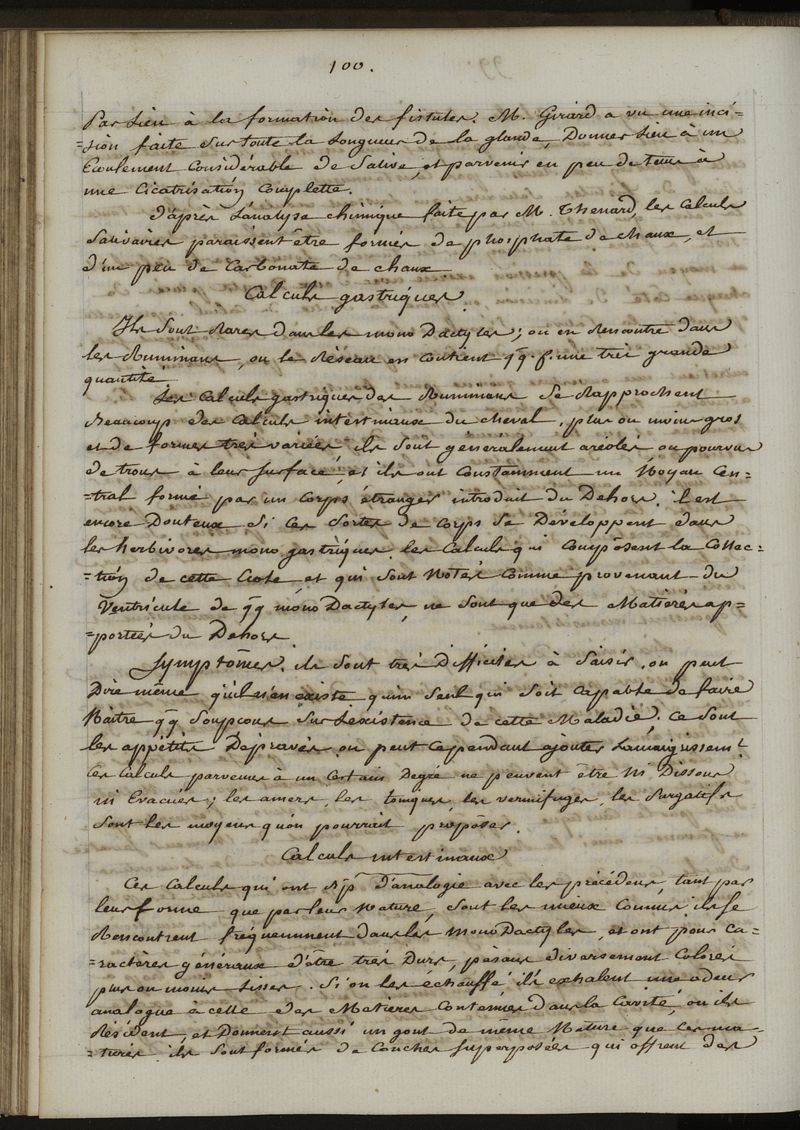 100.
Pas lieu à la formation des fistules. M. Girard a vu une inci=
=sion faite sur toute la longueur de la glande, Donner lieu à un
Ecoulement Considérable de Salive, et parvenir en peu de tems à
une Cicatrisation Complette.
D'après l'analyse chimique faite par M. Thenard, les Calculs
Salivaires paraissent être formés de phosphate de chaux, et
d'un peu de Carbonate de chaux.
Calculs gastriques.
Ils sont Rares dans les mono Dactyles; on en Rencontre dans
les Ruminans, ou le Réseau en contient qq. f. une très grande
quantité.
Les Calculs gastriques des Ruminans se Rapprochent
Beaucoup des Calculs intestinaux du cheval, plus ou moins gros
et de formes très variées ils sont généralement aréolés ou pourvus
de trous à leur surface, et ils ont Constamment un Noyau Cen=
=tral formé par un Corps étranger introduit du Dehors. il est
encore Douteux Si ces sortes de Corps se Développent dans
les herbivores mono gastriques les Calculs qui Composent la Collec=
=tion de cette Ecole, et qui sont Notés Comme provenant du
Ventricule de qq mono Dactyles, ne sont que des Matières ap=
=portées du Dehors.
Symptômes. ils sont très Difficiles à Saisir, on peut
Dire même qu'il n'en existe qu'un seul qui soit capable de faire
Naître qq Soupçons sur l'existence de cette Maladie. Ce sont
les appétits Dépravés on peut cependant ajouter L'amaigrissemt
Ces Calculs parvenus à un Certain Degré ne peuvent être Ni Dissous
ni Evacués; les amers, les toniques, les vermifuges, les Purgatifs
sont les moyens qu'on pourrait proposer.
Calculs intestinaux
Ces Calculs qui ont d'analogie avec les précédens, tant par
leur forme que par leur Nature, sont les mieux Connus; ils se
Rencontrent fréquemment dans les Mono Dactyles, et ont pour Ca=
=ractères généraux d'être très Durs, pesans diversement Colorés
plus ou moins lisses. Si on les échauffe ils exhalent une odeur
analogue à celle des Matières Contenues dans la Cavité, où ils
Résident, et Donnent aussi un gout de même Nature que ces ma=
=tières ils sont formés de Couches superposées qui offrent des